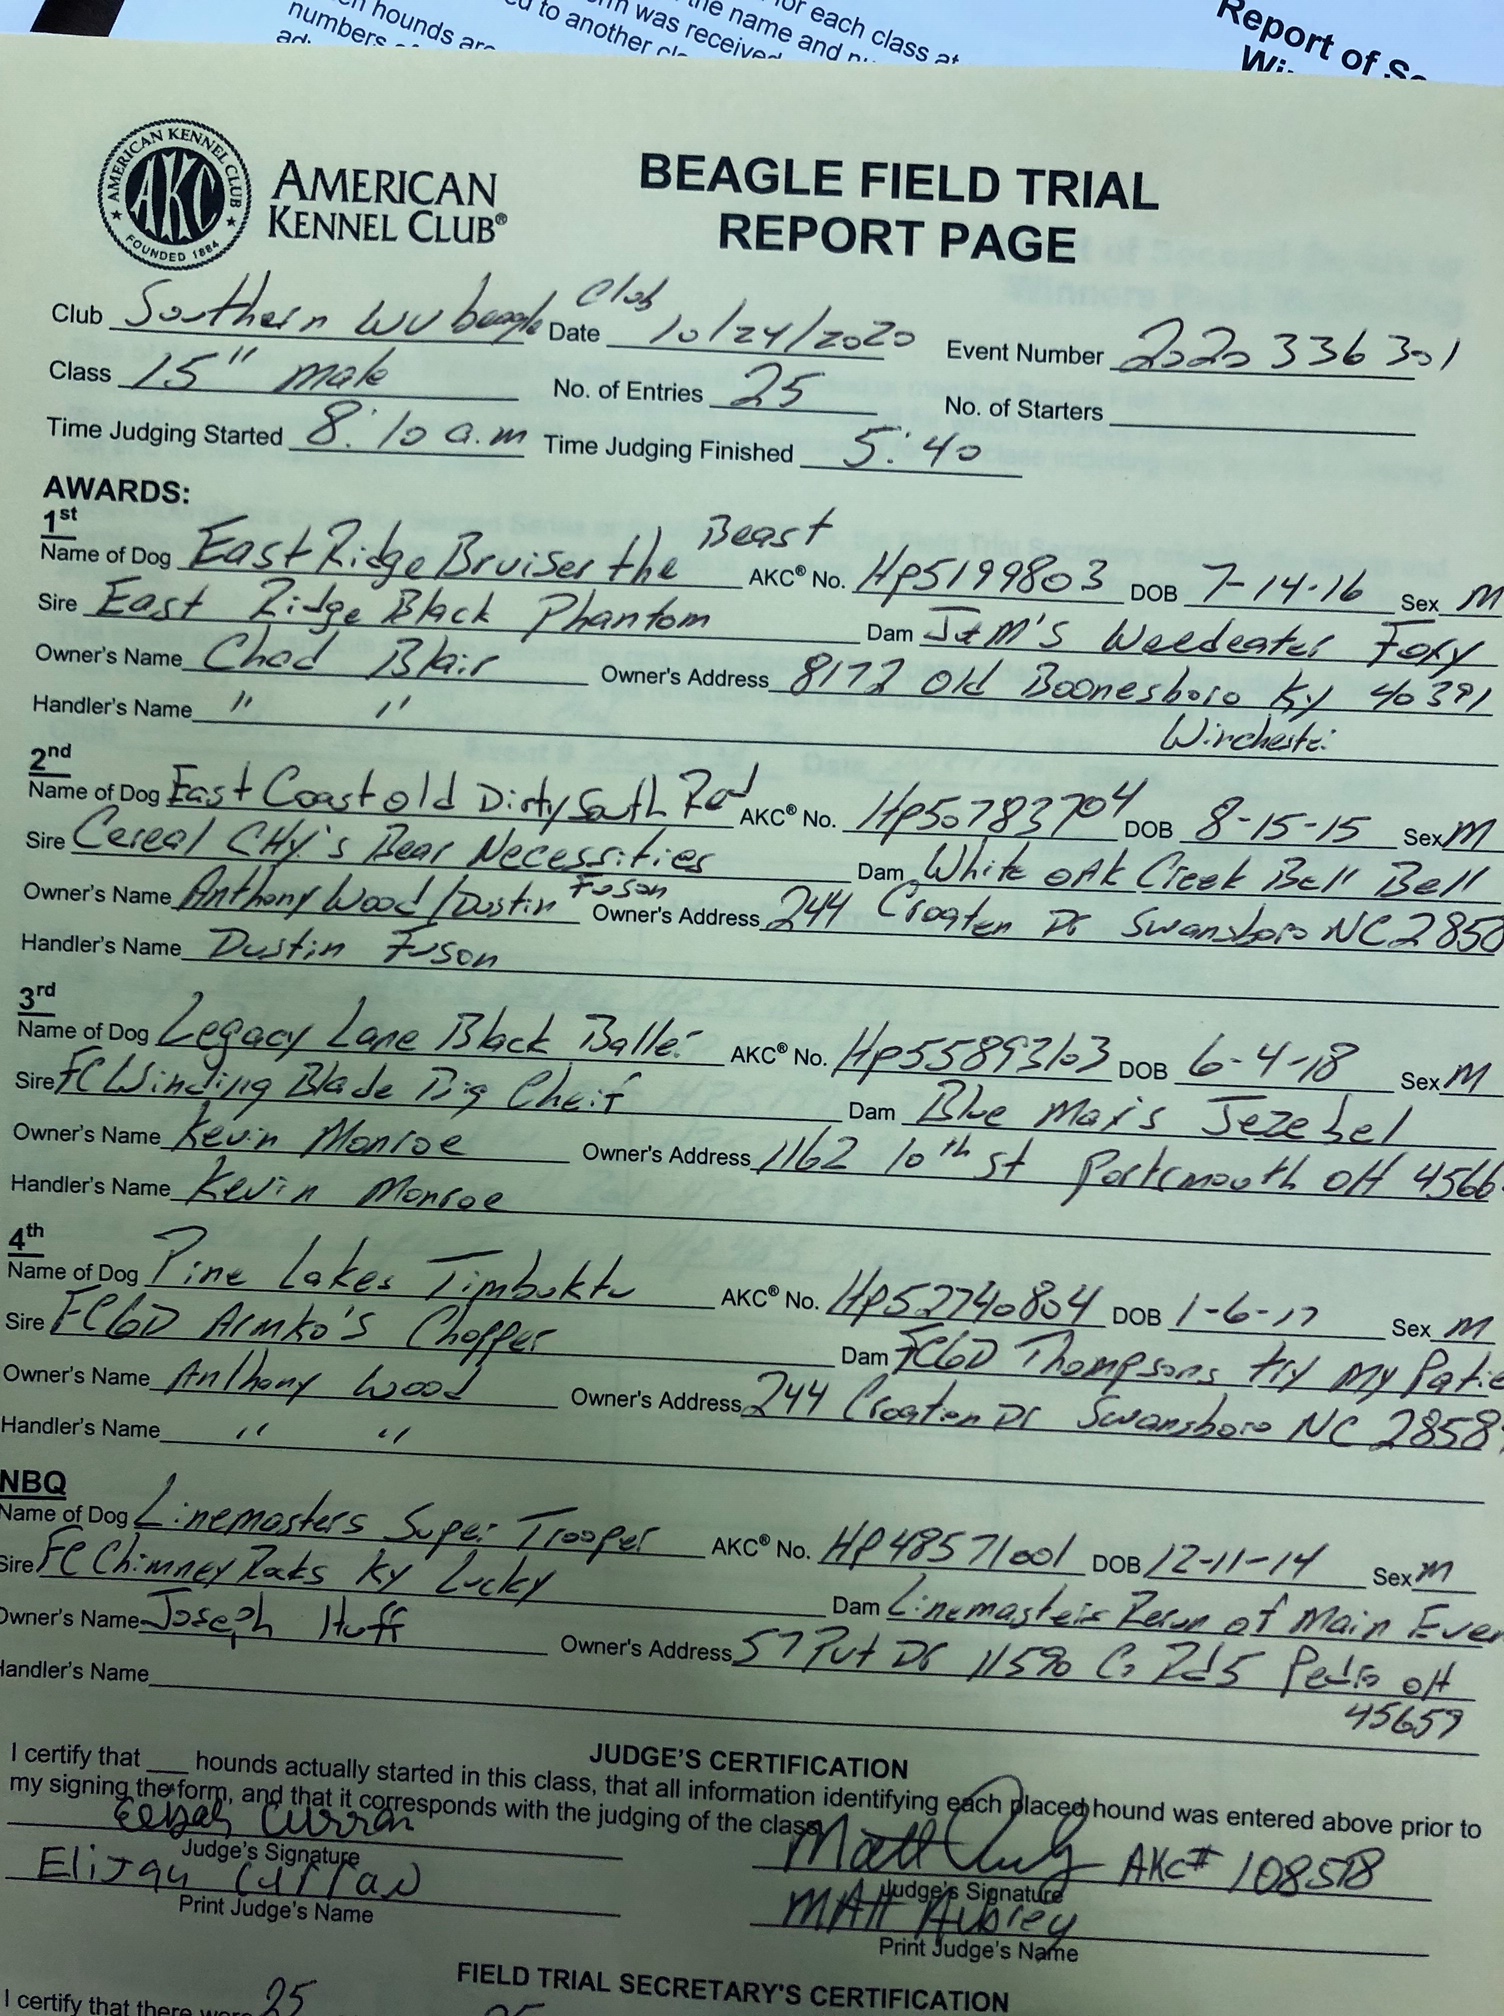 hounds are
numbers
to another
was received
the name and
for each class at
Report of
AMERICAN KENNEL CLUB
AKC
FOUNDED 1884
AMERICAN
KENNEL CLUB®
BEAGLE FIELD TRIAL
REPORT PAGE
Club Southern WV beagle Club Date 10/24/2020 Event Number 2020336301
Class 15" male No. of Entries 25 No. of Starters
Time Judging Started 8:10 a.m Time Judging Finished 5:40
AWARDS:
1st
Name of Dog East Ridge Bruiser the Beast AKC® No. Hp5199803 DOB 7-14-16 Sex M
Sire East Ridge Black Phantom Dam J&M'S Weedeater Foxy
Owner's Name Chad Blair Owner's Address 8172 Old Boonesboro Ky 40391
Handler's Name " " Winchester
2nd
Name of Dog East Coast old Dirty South Rod AKC® No. Hp50783704 DOB 8-15-15 Sex M
Sire Cereal CHy's Bear Necessities Dam White oAk Creek Bell Bell
Owner's Name Anthony Wood/Dustin Fuson Owner's Address 244 Croaten Dr Swansboro NC 2850
Handler's Name Dustin Fuson
3rd
Name of Dog Legacy Lane Black Baller AKC® No. Hp55893103 DOB 6-4-18 Sex M
Sire FC Winding Blade Big Cheif Dam Blue Max's Jezebel
Owner's Name Kevin Monroe Owner's Address 1162 10th St Portsmouth OH 4566
Handler's Name Kevin Monroe
4th
Name of Dog Pine Lakes Timbuktu AKC® No. Hp52740804 DOB 1-6-17 Sex M
Sire FCGD Armko's Chopper Dam FCGD Thompsons try My Patie
Owner's Name Anthony Wood Owner's Address 244 Croaten Dr Swansboro NC 28584
Handler's Name " "
NBQ
Name of Dog Linemasters Super Trooper AKC® No. HP48571001 DOB 12-11-14 Sex M
Sire FC Chimney Rocks Ky Lucky Dam Linemasters Rerun of Main Even
Owner's Name Joseph Huff Owner's Address 57 Put Dr 11590 Co Rd 5 Pedro OH
Handler's Name 45659
JUDGE'S CERTIFICATION
I certify that ___ hounds actually started in this class, that all information identifying each placed hound was entered above prior to
my signing the form, and that it corresponds with the judging of the class.
Elijah Curran
Judge's Signature
Matt AKC# 108518
Judge's Signature
Elijah Curran
Print Judge's Name
MAtt Aubrey
Print Judge's Name
FIELD TRIAL SECRETARY'S CERTIFICATION
I certify that there were 25